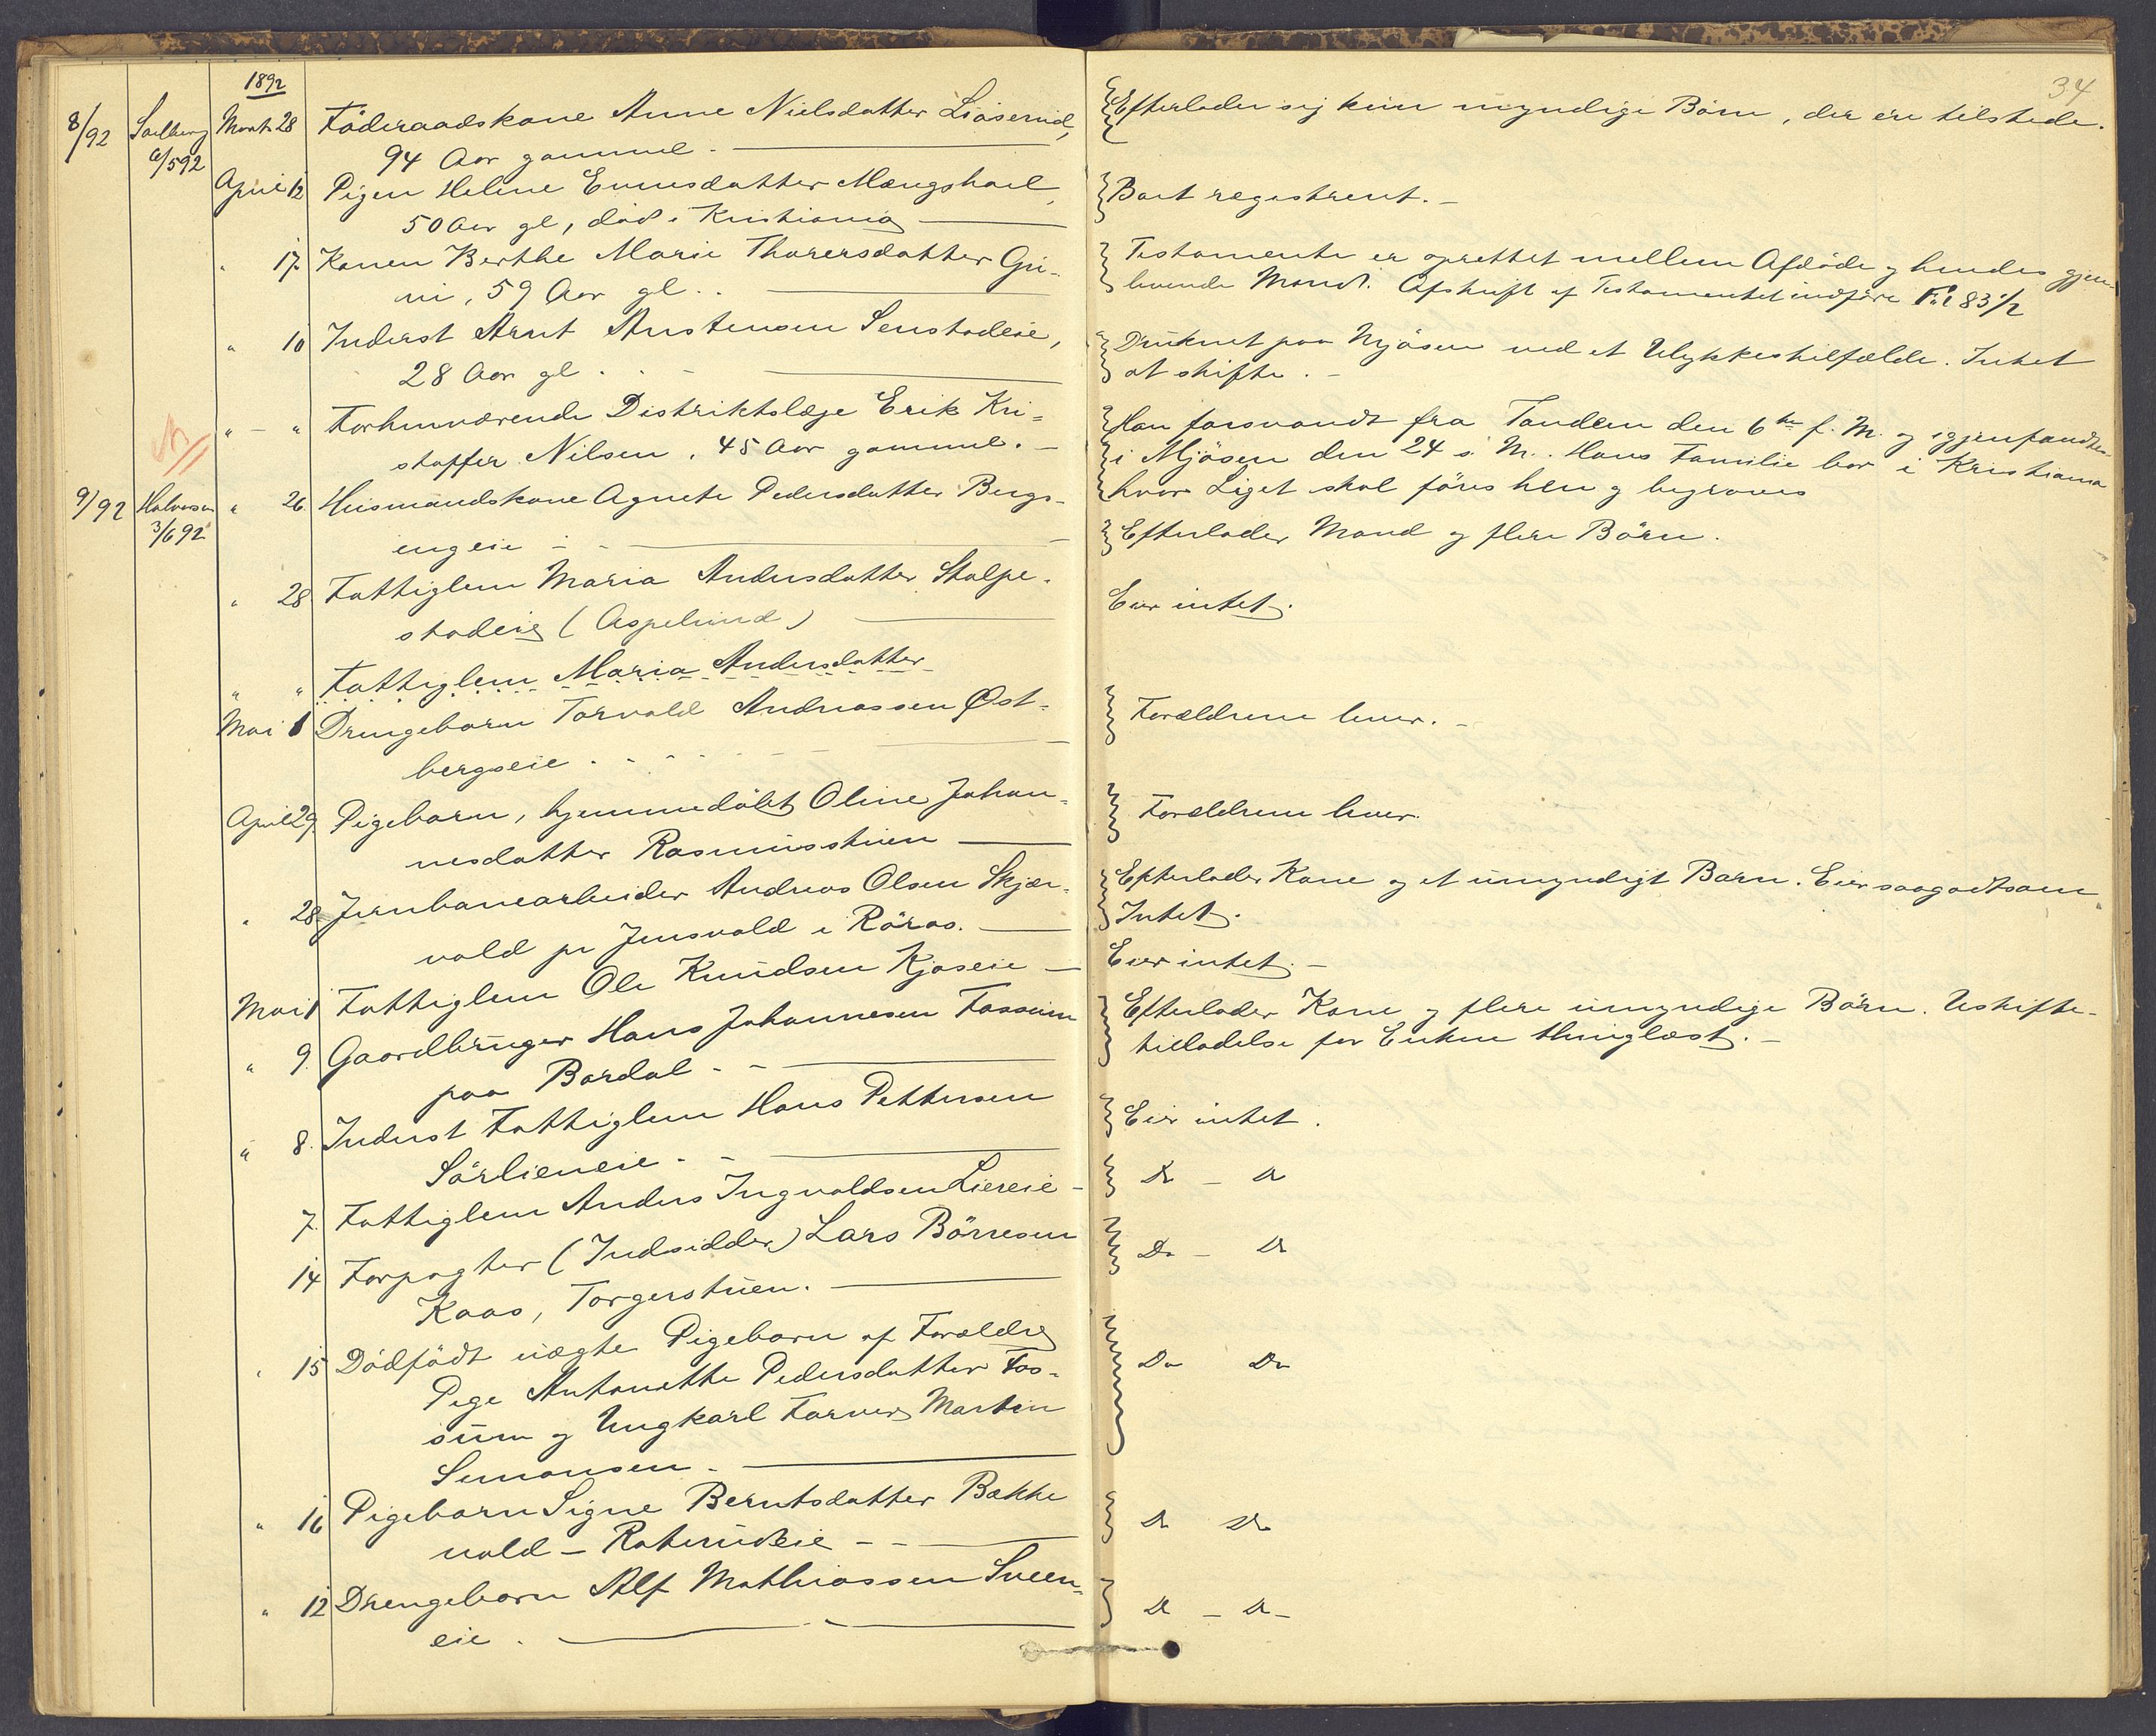 1892
34
8/92 Solberg Marts 28 Föderaadskone Anne Nielsdatter Liöserud, Efterlader sig kun myndige Börn, der ere tilstede.
6/5 92 94 Aar gammel.
April 12 Pigen Helene Evensdatter Mængshoel, Bort registrert.
50 Aar gl, död i Kristiania
" 17. Konen Berthe Marie Thorersdatter Gri- Testamente er oprettet mellem Afdöde og hendes gjen-
ni, 59 Aar gl.. levende Mand. Afskrift af Testamentet indföre Fol 83 1/2
" 10 Inderst Arnt Anstensen Senstadeie, Druknet paa Mjösen ved et Ulykkestilfælde. Intet
28 Aar gl. at skifte.
" - " Forhenværende Distriktslæge Erik Kri= Han forsvandt fra Tandem den 6te f. M. og igjenfandtes
stoffer Nilsen. 45 Aar gammel. i Mjösen den 24 s. M.. Hans Familie bor i Kristiania
hvor Liget skal föres hen og begraves
9/92 Halvorsen " 26. Husmandskone Agnete Pedersdatter Bergs-
3/6 92 engeie Efterlader Mand og flere Börn.
" 28. Fattiglem Maria Andersdatter Stalpe- Eier intet.
stadeie (Aspelund)
" " Fattiglem Maria Andersdatter
Mai 1 Drengebarn Torvald Andreassen Øst- Forældrene lever.
bergseie.
April 29 Pigebarn, hjemmedöbt Oline Johan- Forældrene lever.
nesdatter Rasmusstuen
" 28 Jernbanearbeider Andreas Olsen Skjær- Efterlader Kone og et umyndigt Barn. Eier saagodtsom
vold pr Jensvold i Röros. Intet.
Mai 1 Fattiglem Ole Knudsen Kjoseie Eier intet.
" 9. Gaardbruger Hans Johannesen Fossum Efterlader Kone og flere umyndige Börn. Uskifte-
paa Bardal tilladelse for Enken thinglæst.
" 8. Inderst Fattiglem Hans Pettersen Eier intet.
Sörlieneie
7. Fattiglem Anders Ingvaldsen Liereie Do - Do
14 Forpagter (Indsidder) Lars Börresen Do - Do
Kaas, Torgerstuen.
" 15 Dödfödt uægte Pigebarn af Forældre Do Do
Pige Antonette Pedersdatter Fos-
sum og Ungkarl Farver Martin
Simonsen.
" 16 Pigebarn Signe Berntsdatter Bække Do Do
vold - Raterudeie
" 12 Drengebarn Alf Mathiassen Sveen- Do - Do -
eie.